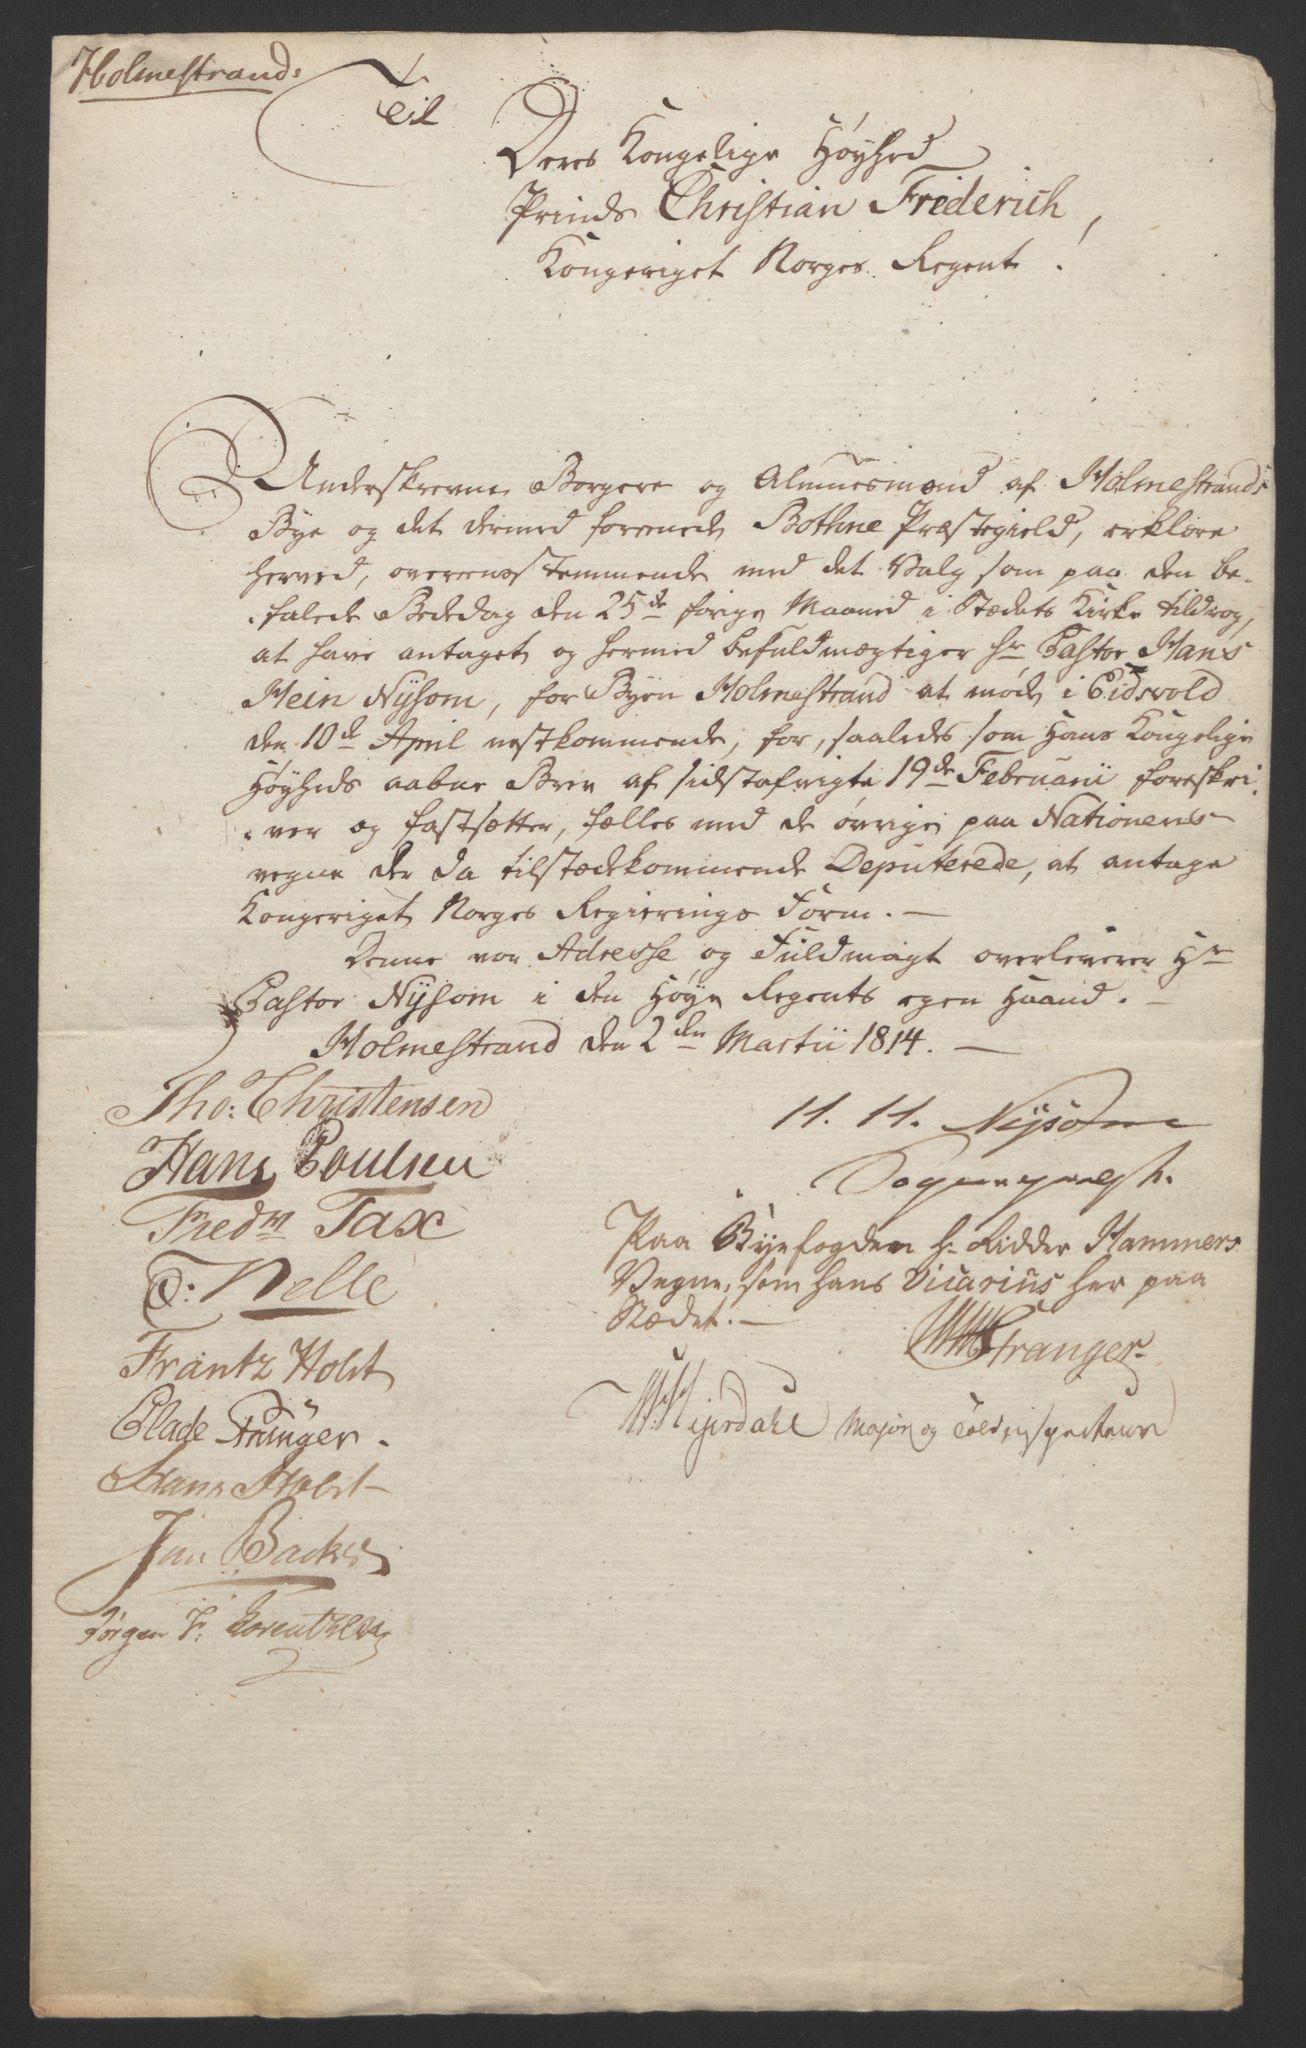 Holmestrand:
Til
Deres Kongelige Høyhed
Prinds Christian Friderich,
Kongeriget Norges Regent!
Underskrevne Borgere og Almuesmænd af Holmestrands
Bye og det dermed foreenede Bothne Præstegield, erklære
herved, overeensstemmende med det Valg som paa den be-
falede Bededag den 25de forige Maaned i Stædets Kirke tildrog,
at have antaget og hermed befuldmægtiger Hr Pastor Hans
Hein Nysom, for Byen Holmestrand at møde i Eidsvold
den 10de April nestkommende, for, saaledes som Hans Kongelige
Høyheds aabne Brev af sidstafvigte 19de Februarii foreskri-
ver og fastsætter, fælles med de øvrige paa Nationens
vegne der da tilstædekommende Deputerede, at antage
Kongeriget Norges Regierings Form. —
Denne vor Adresse og Fuldmagt overleverer Hr
Pastor Nysom i den Høye Regents egen Haand. —
Holmestrand den 2den Martii 1814. —
Tho: Christensen
Hans Poulsen
Fredr Tax
O: Nelle
Frantz Holst
Elade Stranger.
Hans Holst
Jan Backe
Jørgen F: Lorentzen
H. H. Nysom
Sogneprest.
Paa Byefogden Hr Ridder Hammers
Vegne, som hans Vicarius her paa
Stædet. —
Stranger
Hyerdahl Major og Toldinspecteur